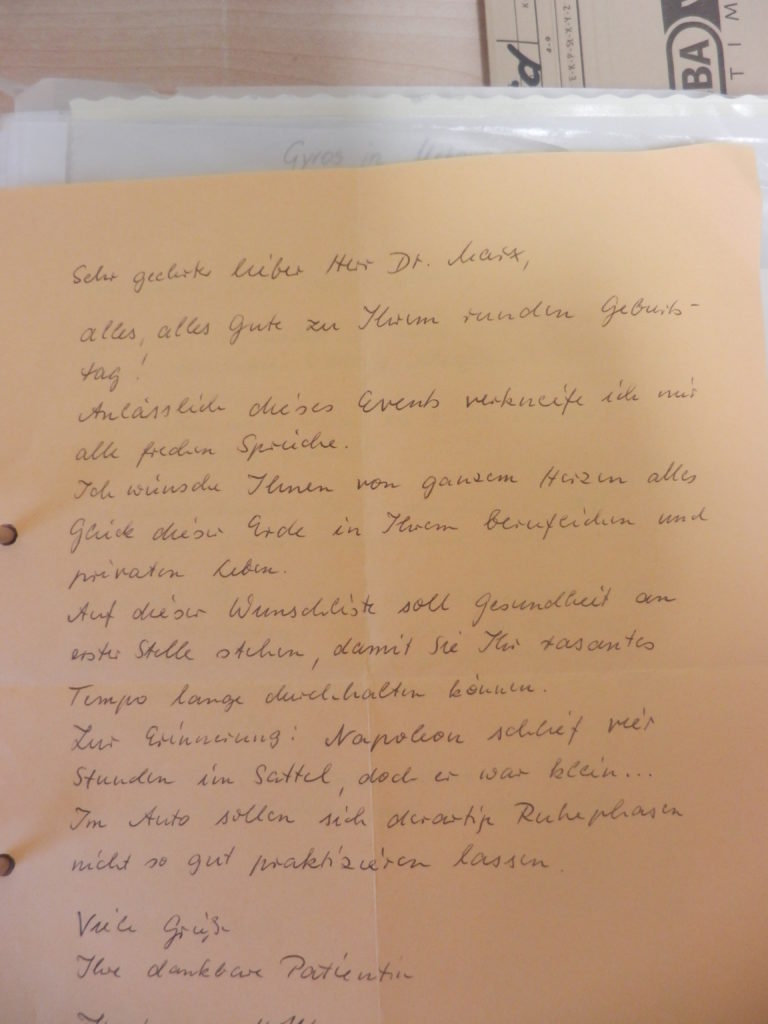 BA
TIM
E-K-P-St-X-Y-Z
Gyros in
Sehr geehrter lieber Herr Dr. Marx,
alles, alles Gute zu Ihrem runden Geburts-
tag!
Anlässlich dieses Events verkneife ich mir
alle frechen Sprüche.
Ich wünsche Ihnen von ganzem Herzen alles
Glück dieser Erde in Ihrem beruflichen und
privaten Leben.
Auf dieser Wunschliste soll Gesundheit an
erster Stelle stehen, damit Sie Ihr rasantes
Tempo lange durchhalten können.
Zur Erinnerung: Napoleon schlief vier
Stunden im Sattel, doch er war klein...
Im Auto sollen sich derartige Ruhephasen
nicht so gut praktizieren lassen.
Viele Grüße
Ihre dankbare Patientin